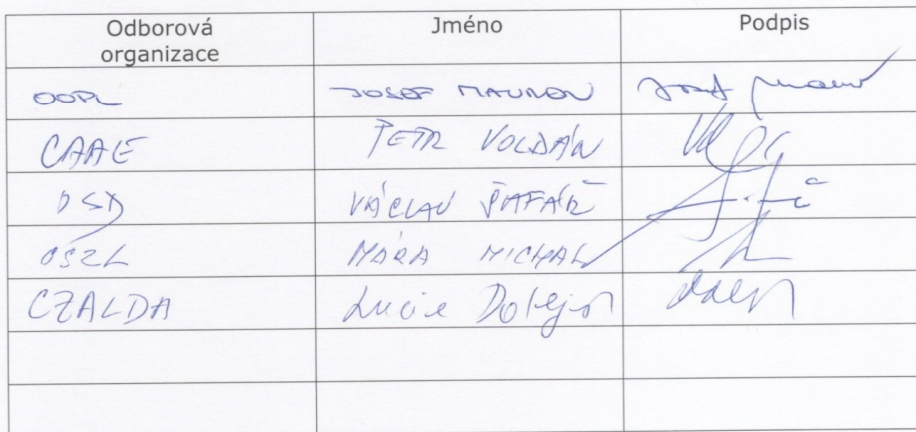 Odborová organizace Jméno Podpis
OOPL JOSEF MAURER
CAAE PETR VOLDÁN
OSD VÁCLAV ŠAFÁŘ
OSZL MÁRA MICHAL
CZALDA Lucie Dolejší